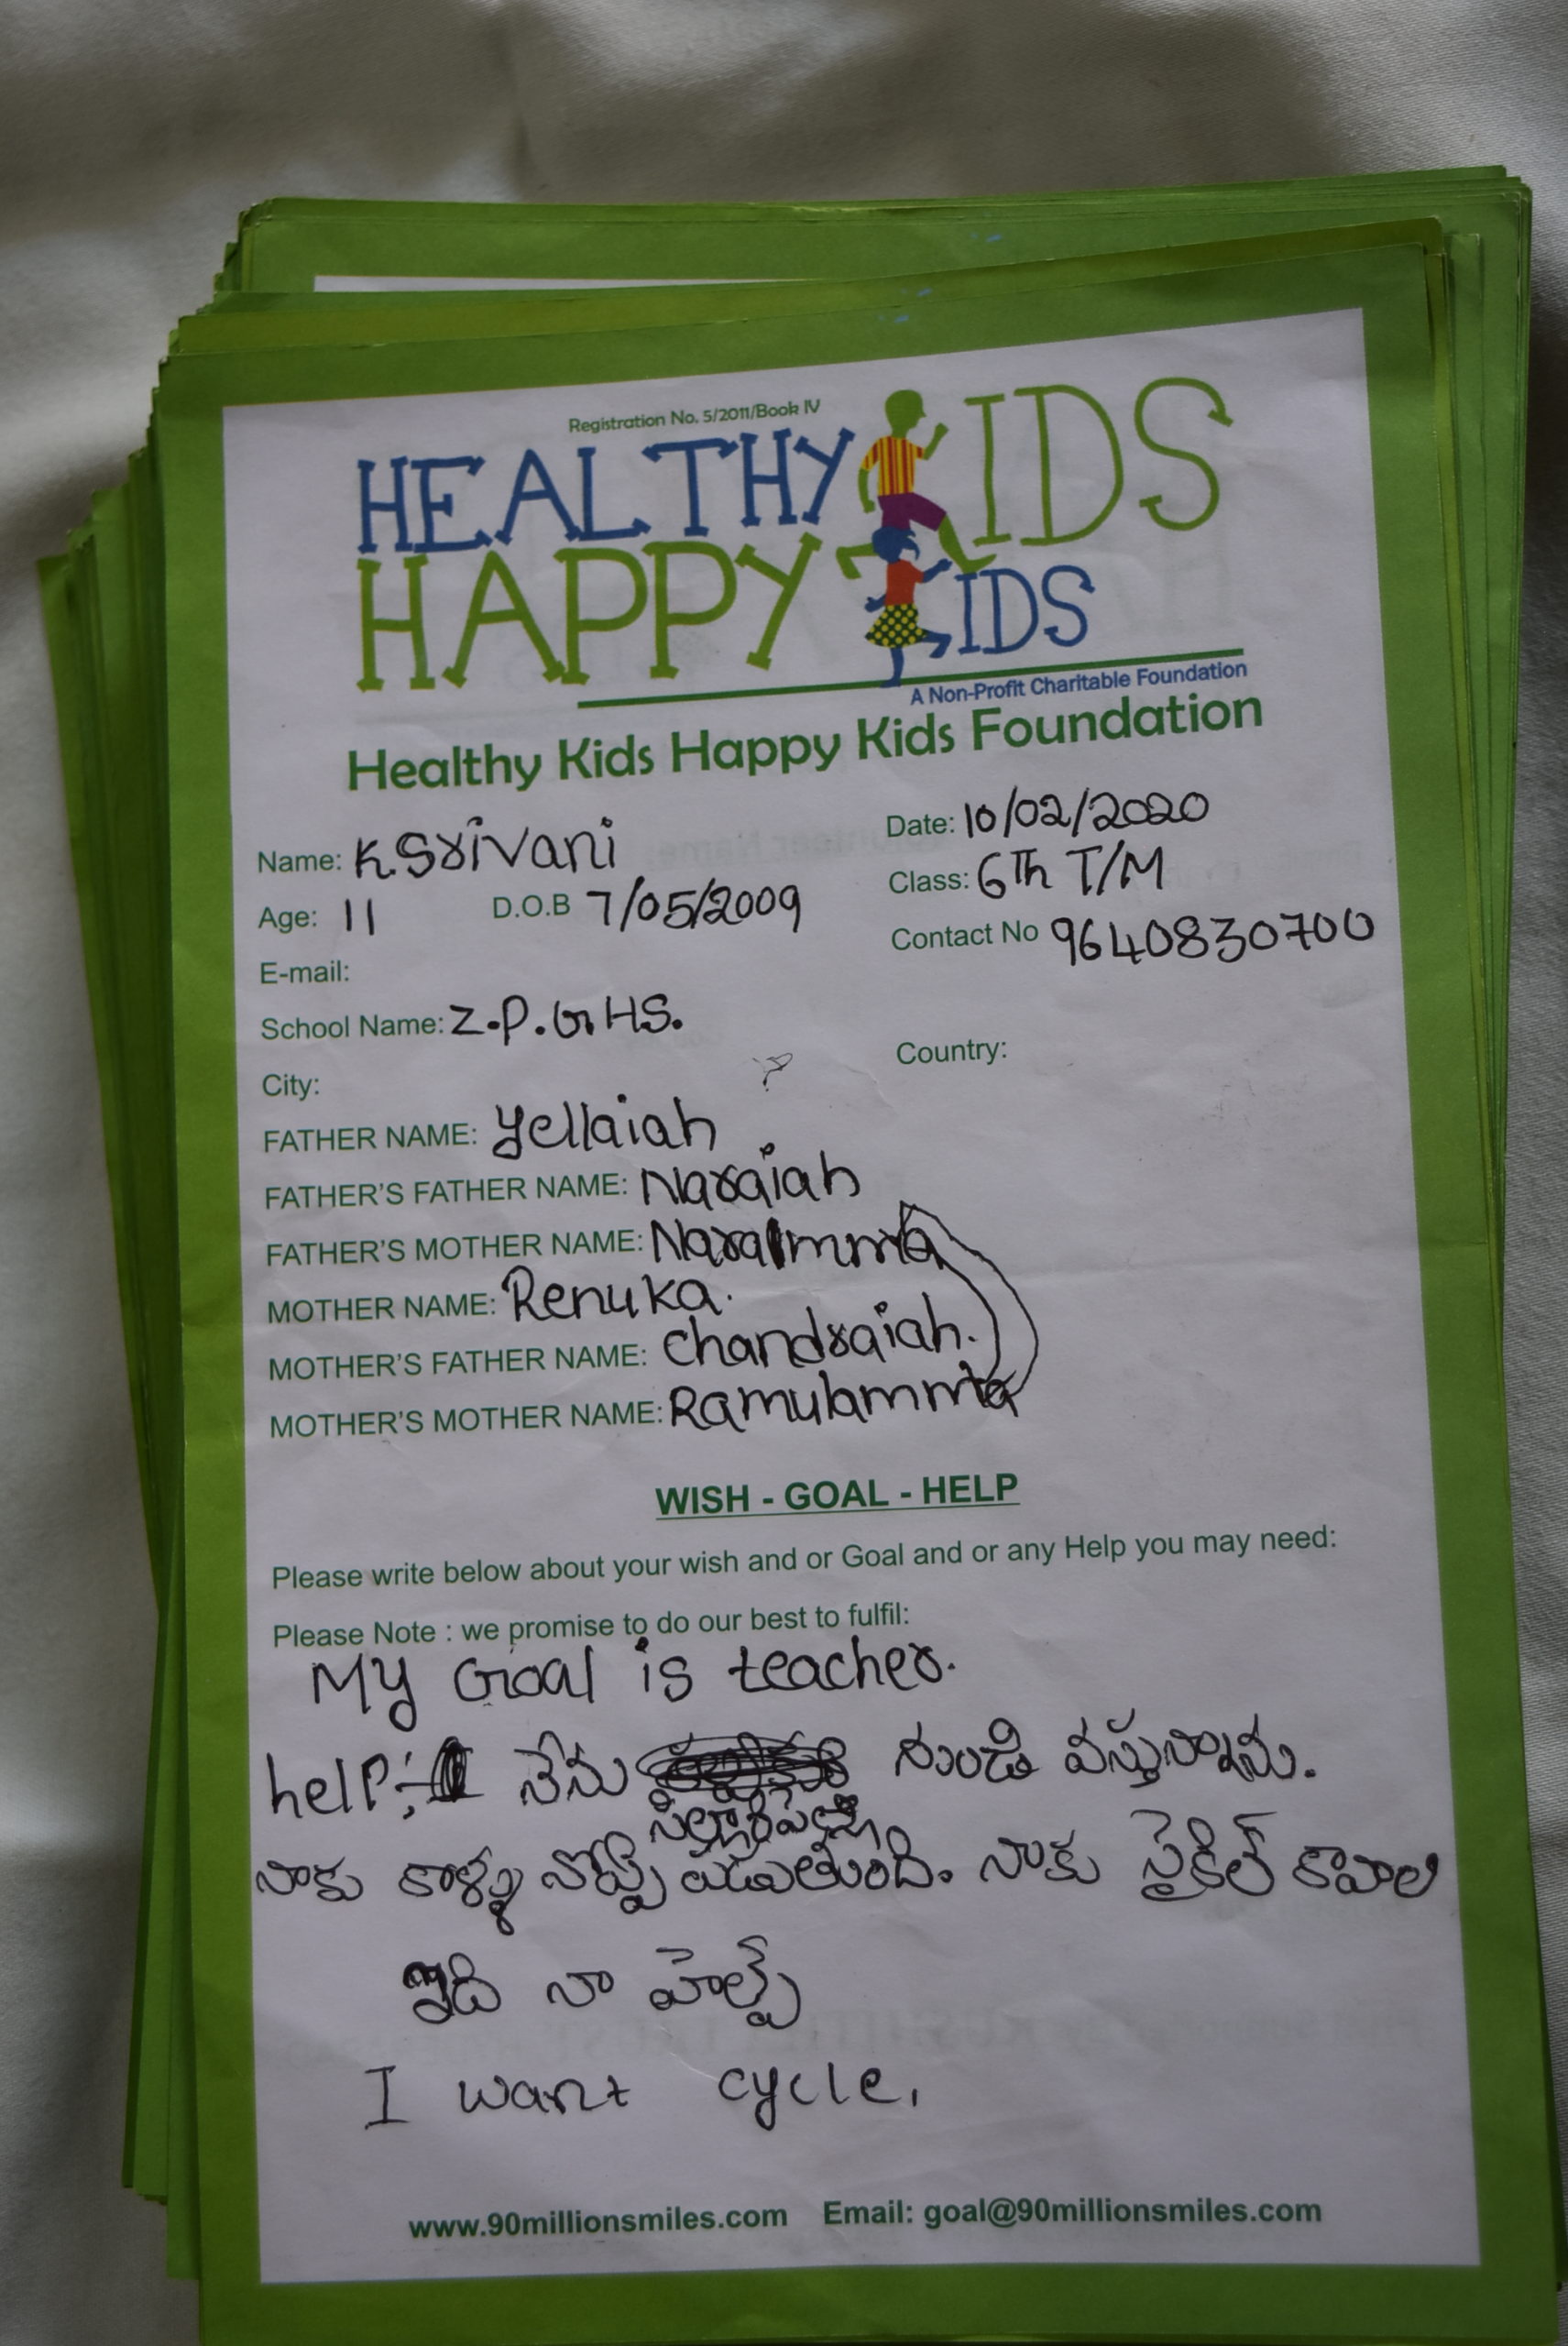 Registration No. 5/2011/Book IV
HEALTHY KIDS
HAPPY KIDS
A Non-Profit Charitable Foundation
Healthy Kids Happy Kids Foundation
Name: K.Srivani Date: 10/02/2020
Age: 11 D.O.B 7/05/2009 Class: 6Th T/M
E-mail: Contact No 9640830700
School Name: Z.P.G.HS.
City: Country:
FATHER NAME: Yellaiah
FATHER'S FATHER NAME: Naraiah
FATHER'S MOTHER NAME:
MOTHER NAME: Renuka.
MOTHER'S FATHER NAME: Chandraiah.
MOTHER'S MOTHER NAME: Ramulamma
WISH - GOAL - HELP
Please write below about your wish and or Goal and or any Help you may need:
Please Note : we promise to do our best to fulfil:
My Goal is teacher.
help:- నేను నుండి వస్తున్నాను.
నాకు కాళ్ళు నొప్పి పడుతుంది. నాకు సైకిల్ కావాలి
ఇది నా హెల్ప్
I want cycle.
www.90millionsmiles.com Email: goal@90millionsmiles.com